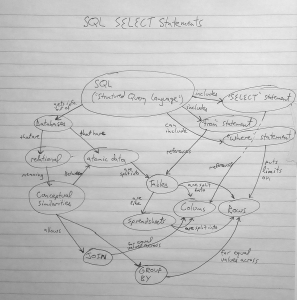 SQL SELECT Statements
SQL
("Structured Query Language")
includes
"SELECT" statement
includes
"from" statement
can
include
"Where" statement
Databases
that have
relational
atomic data
meaning
references
puts
limits
on
Conceptual
Similarities
are
split into
Tables
are split
into
are
like
Columns
Rows
Spreadsheets
are split into
allows
JOIN
for equal
values across
GROUP
BY
for equal
values across